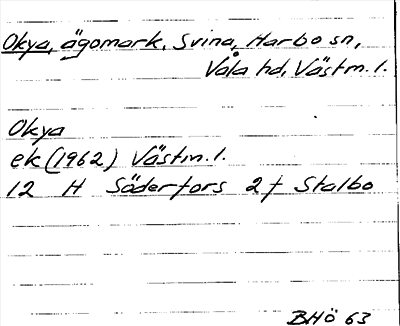 Okya, ägomark, Svina, Harbo sn,
Våla hd, Västm. l.
Okya
ek (1962) Västm. l.
12 H Söderfors 2 f Stalbo
BHö 63